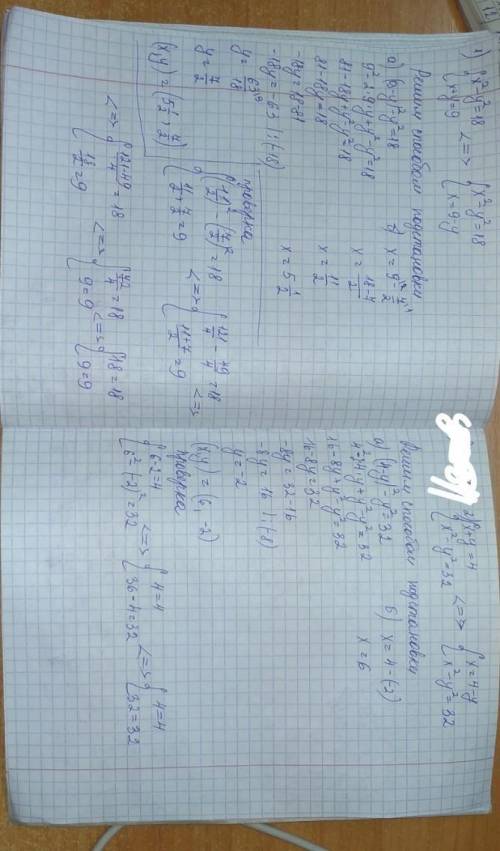 1) { x²-y²=18
x+y=9 <=> { x²-y²=18
x=9-y
Решим способом подстановки
а) (9-y)²-y²=18
9²-2·9·y+y²-y²=18
81-18y+y²-y²=18
81-18y=18
-18y=18-81
-18y=-63 |:(-18)
y=63/18
y=7/2
б) x=9-7/2
x=18-7/2
x=11/2
x=5 1/2
(x,y)=(5 1/2; 7/2)
Проверка
{ (11/2)²-(7/2)²=18
11/2+7/2=9 <=> { 121/4-49/4=18
11+7/2=9 <=>
<=> { 121-49/4=18
18/2=9 <=> { 72/4=18
9=9 <=> { 18=18
9=9
2) { x+y=4
x²-y²=32 <=> { x=4-y
x²-y²=32
Решим способом подстановки
а) (4-y)²-y²=32
16-8y+y²-y²=32
16-8y=32
-8y=32-16
-8y=16 |:(-8)
y=-2
б) x=4-(-2)
x=6
(x,y)=(6,-2)
Проверка
{ 6-2=4
6²-(-2)²=32 <=> { 4=4
36-4=32 <=> { 4=4
32=32